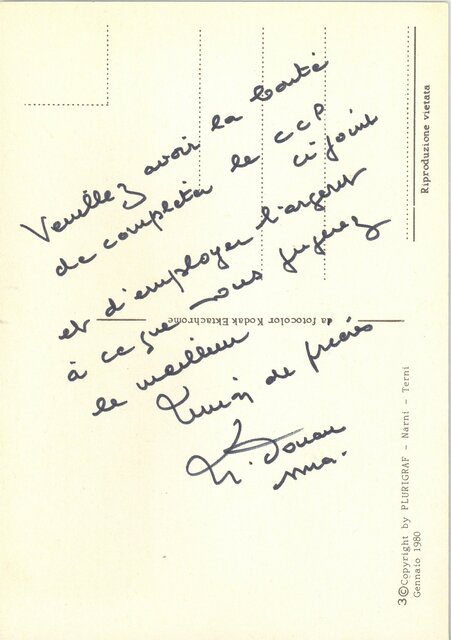 Veuillez avoir la bonté
de compléter le CCP
ci joint
et d'employer l'argent
à ce que vous jugerez
le meilleur
Union de prières
Riproduzione vietata
da fotocolor Kodak Ektachrome
3 ©Copyright by PLURIGRAF - Narni - Terni
Gennaio 1980